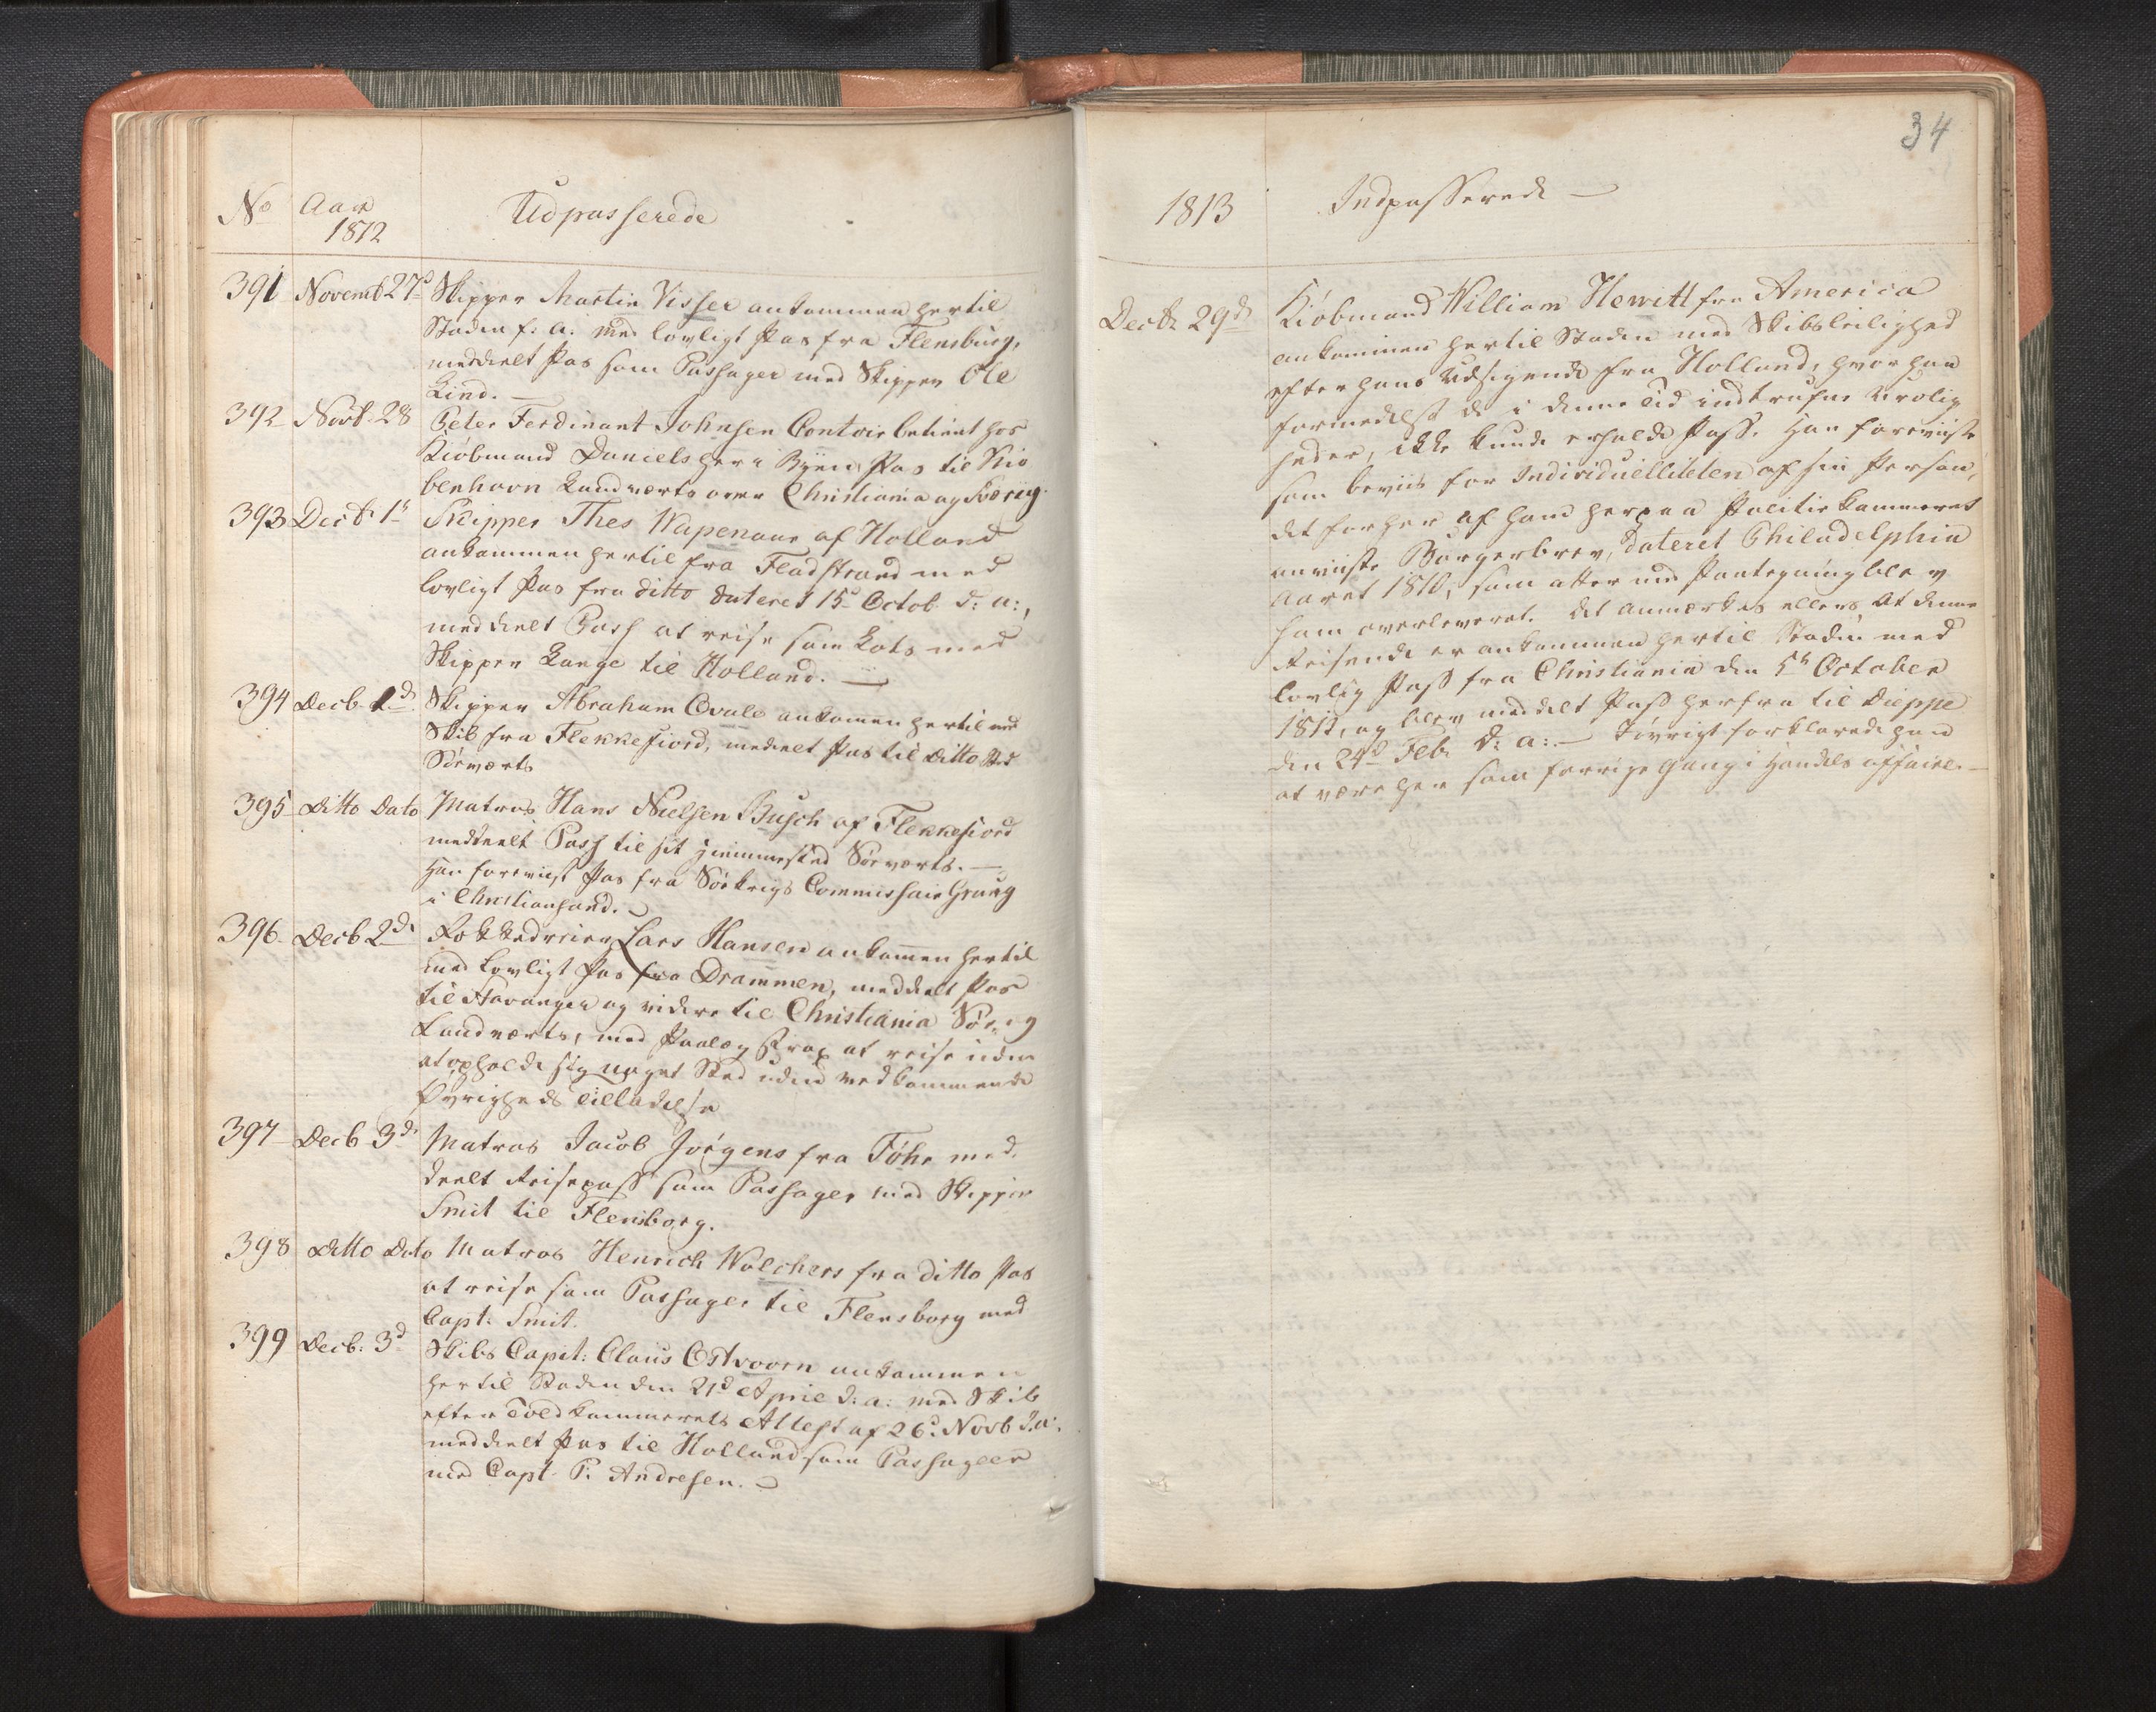 No
Aar
1812
Udpasserede
391 Novemb 27d Skipper Martin Visser ankommen hertil
Staden f: a: med lovligt Pas fra Flensburg,
meddeelt Pas som Passager med Skipper Ole
Lind. —
392 Novb. 28 Peter Ferdinant Johnsen Contoirbetient hos
Kiöbmand Daniels her i Byen, Pas til Kiö
benhavn Landværts over Christiania og Sverig.
393 Decb. 1s Skipper Thes Wapenaur af Holland
ankommen hertil fra Fladstrand med
lovligt Pas fra ditto dateret 15d Octob. d: a:,
meddeelt Pass at reise som Lots med
Skipper Lange til Holland. —
394 Decb. 2d Skipper Abraham Ovale ankomen hertil med
Skib fra Flekkefiord, medeelt Pas til ditto Sted
Söeværts
395 Ditto Dato Matros Hans Nielsen Busch af Flekkefiord
meddeelt Pass til sit Hiemmested Söeværts. —
Han foreviist Pas fra Söekrigs Commissair Grung
i Christiansand. —
396 Decb 2d Lars Hansen ankomen hertil
med lovligt Pas fra Drammen, meddeelt Pas
til Stavanger og videre til Christiania Söe- og
Landværts, med Paalæg strax at reise uden
at opholde sig noget Sted uden vedkommende
Øvrigheds Tilladelse
397 Decb 3d Matros Jacob Jörgens fra Föhr med-
deelt Reisepass som Passager med Skipper
Smit til Flensborg.
398 Ditto Dato Matros Henrich Wolchers fra ditto Pas
at reise som Passager til Flensborg med
Capt: Smit.
399 Decb: 3d Skibs Capit: Claus Ostvoorn ankommen
hertil Staden den 21d April d: a: med Skib
efter Toldkammerets Attest af 26d Novb d.a:
meddeelt Pas til Holland som Passageer
med Capt. P. Andresen. —
34
1813
Indpasserede —
Decbr 29d Kiöbmand William Hewitt fra America
ankommen hertil Staden med Skibsleilighed
efter hans Udsigende fra Holland, hvor han
formedelst de i denne Tid indtrufne Urolig
heder, ikke kunde erholde Pass. Han foreviiste
som beviis for Individuelliteten af sin Person,
det forhen af ham her paa Politiekammeret
anviiste Borgerbrev, dateret Philadelphia
Aaret 1810, som atter med Paategning blev
ham overleveret. Det anmærkes ellers at denne
Reisende er ankommen hertil Staden med
lovlig Pass fra Christiania den 5te October
1812, og blev meddelt Pass herfra til Dieppe
den 24d Feb. d: a: — Iövrigt forklarede han
at være her som forrige gang i Handels affairer. —